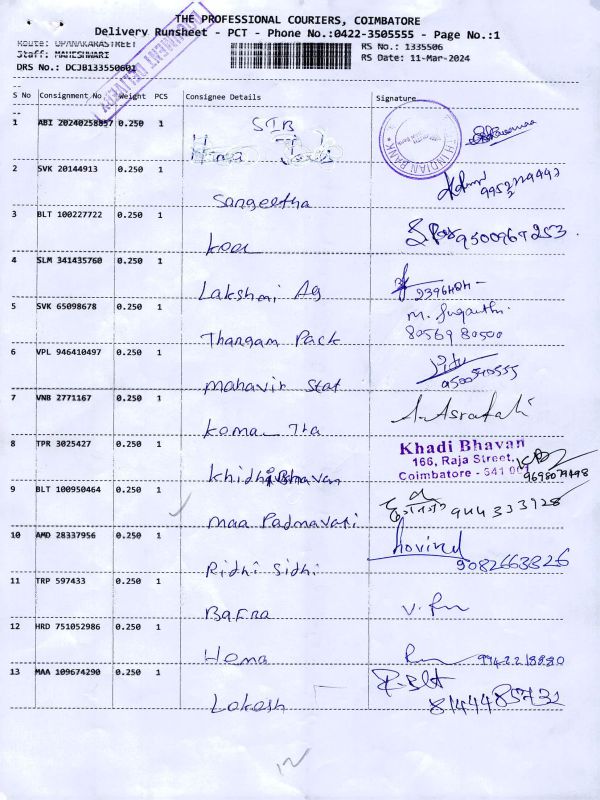 THE PROFESSIONAL COURIERS, COIMBATORE
Delivery Runsheet - PCT - Phone No.:0422-3505555 - Page No.:1
Route: OPANAKARASTREET
Staff: MAHESHWARI
RS No.: 1335506
DRS No.: DCJB133550601
RS Date: 11-Mar-2024
S No Consignment No. Weight PCS Consignee Details Signature
1 ABI 20240258857 0.250 1 SIB
2 SVK 20144913 0.250 1 Sangeetha 9952779492
3 BLT 100227722 0.250 1 9500967253.
4 SLM 341435760 0.250 1 Lakshmi Ag
5 SVK 65098678 0.250 1 Thangam Pack
8056980500
6 VPL 946410497 0.250 1 Mahavir Stat
9500540555
7 VNB 2771167 0.250 1
8 TPR 3025427 0.250 1 Khidhi Bhavan
Khadi Bhavan
166, Raja Street,
Coimbatore - 641 001
9698079498
9 BLT 100950464 0.250 1 Maa Padmavati 944333928
10 AMD 28337956 0.250 1 Ridhi Sidhi 9082663326
11 TRP 597433 0.250 1 Bafna
12 HRD 751052986 0.250 1 Hema
13 MAA 109674290 0.250 1 Lokesh
8144485732
12